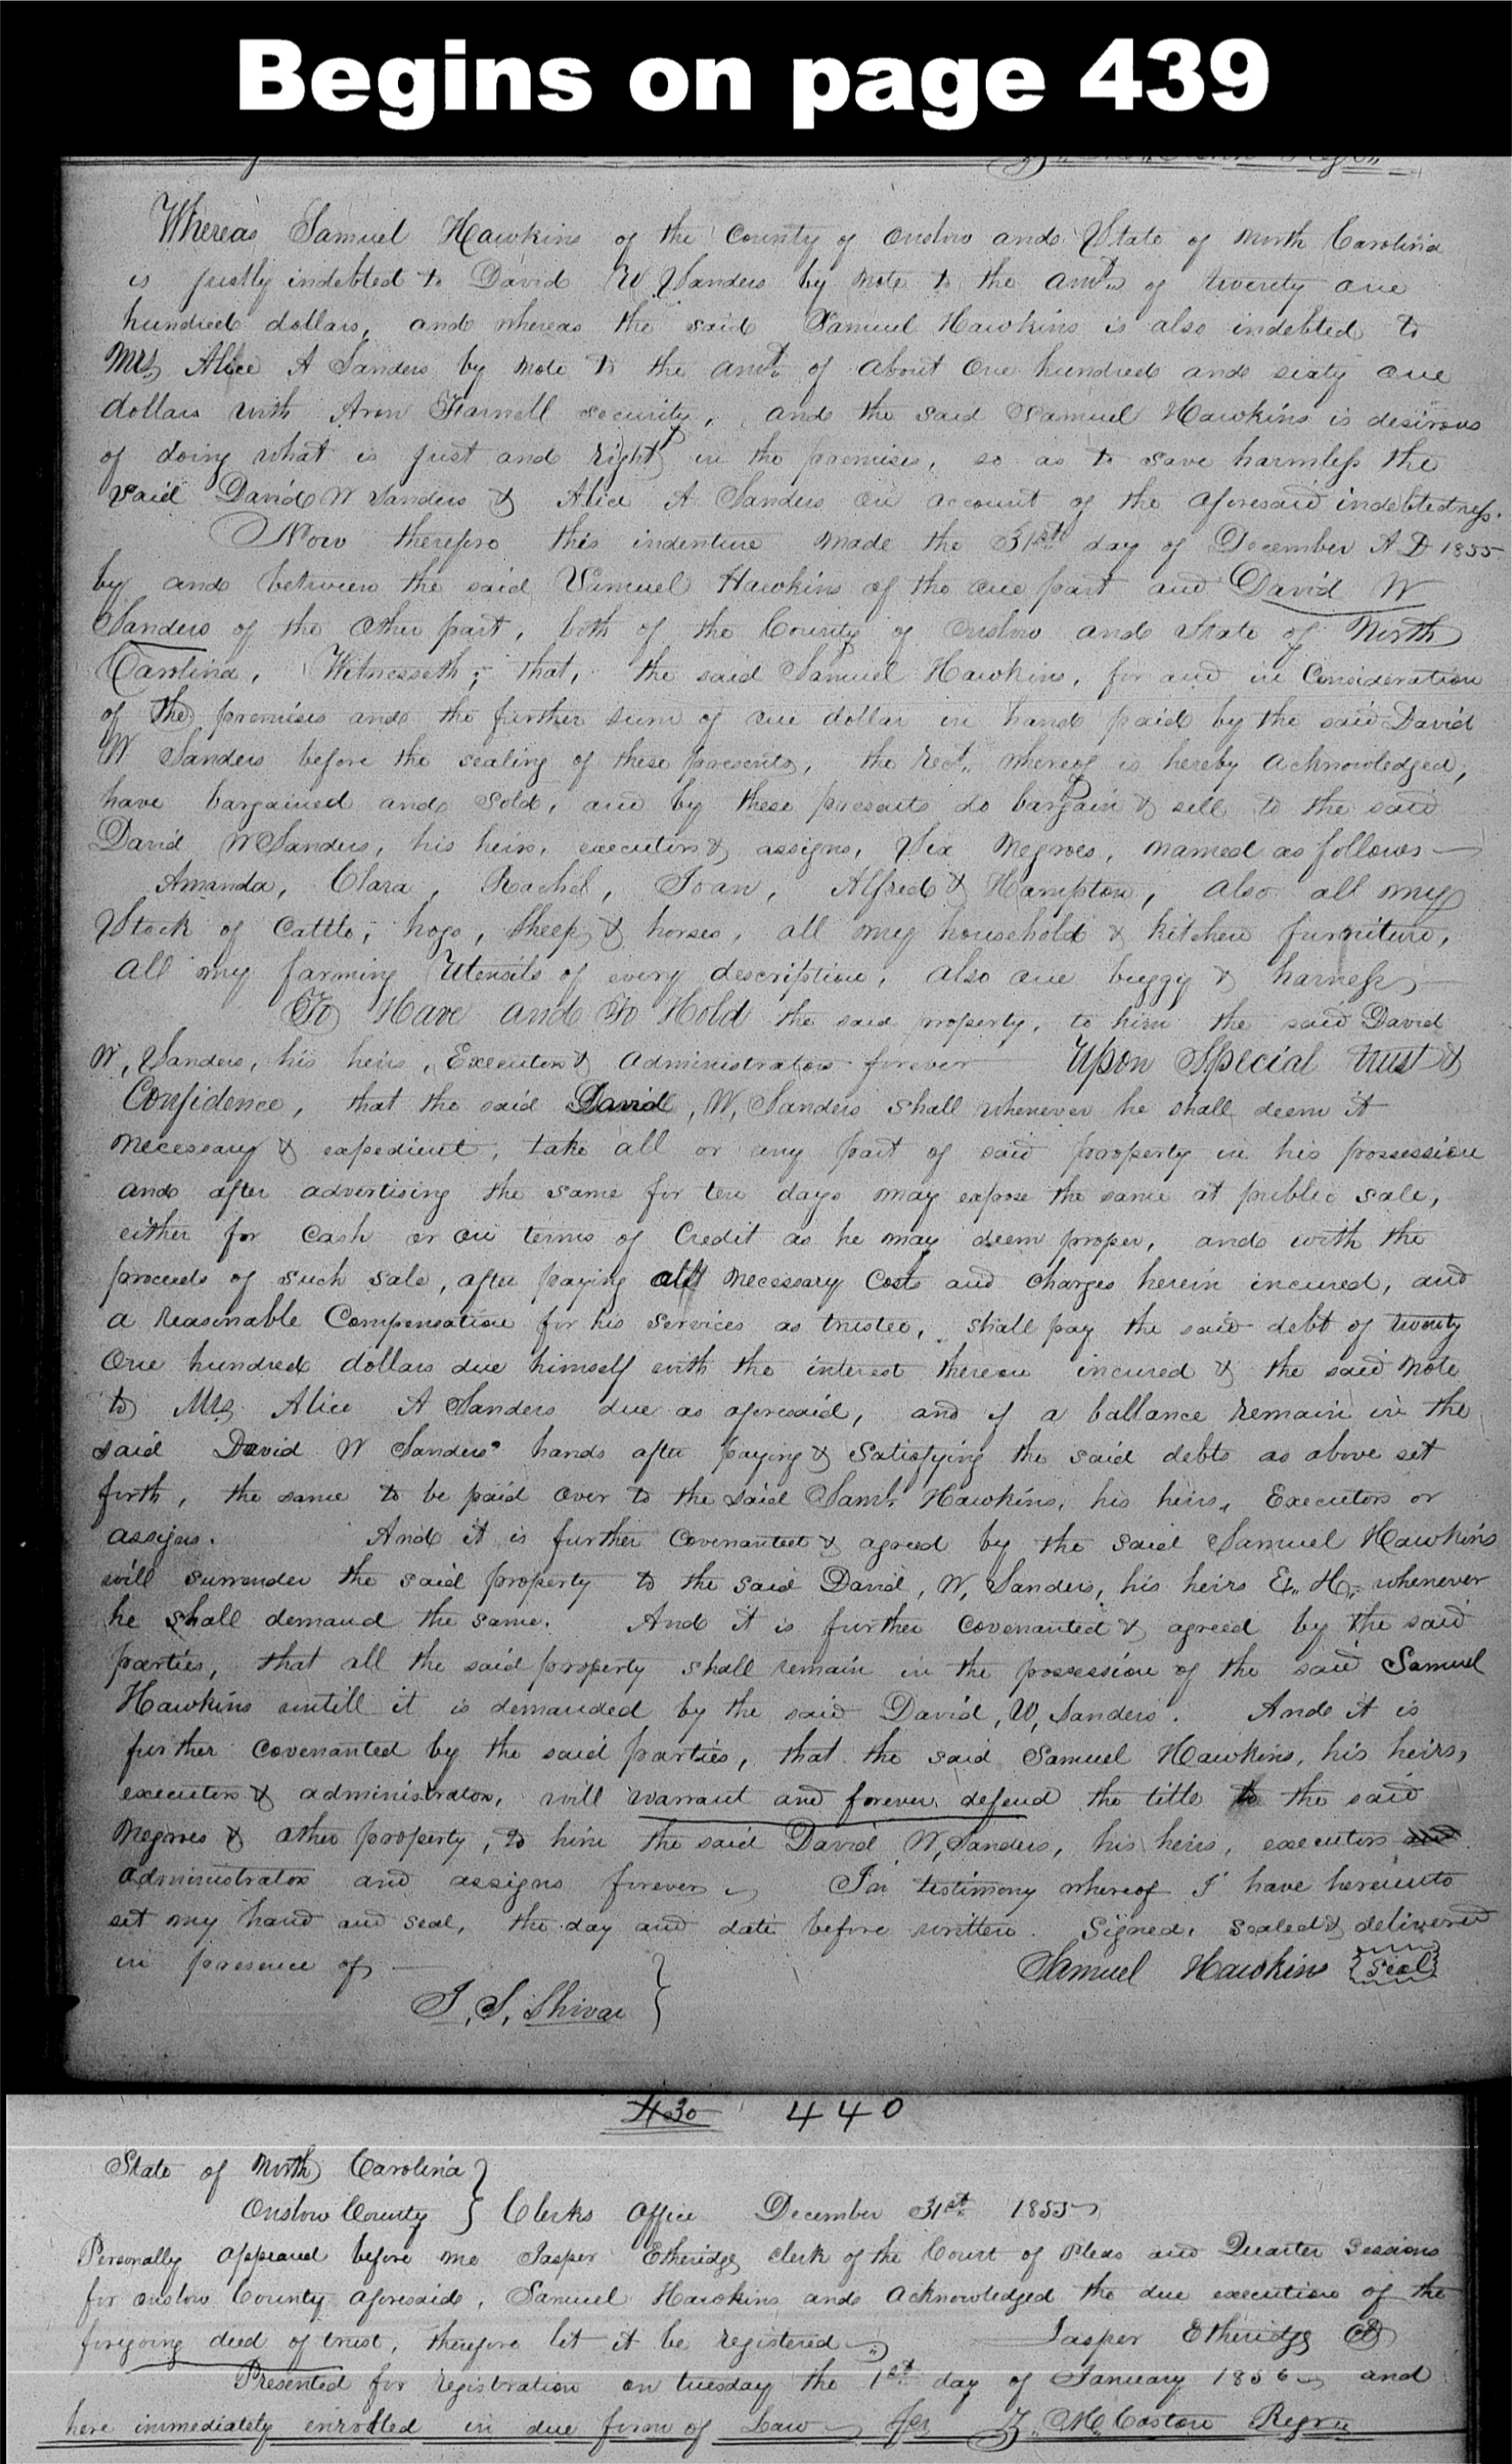 Begins on page 439
Whereas Samuel Hawkins of the County of Onslow and State of North Carolina
is justly indebted to David W Sanders by note to the amt. of twenty one
hundred dollars, and whereas the said Samuel Hawkins is also indebted to
Mrs Alice A Sanders by note to the amt. of about One hundred and sixty one
dollars with Aron Farnell security, and the said Samuel Hawkins is desirous
of doing what is just and right in the premises, so as to save harmless the
said David W Sanders & Alice A Sanders on account of the aforesaid indebtedness.
Now therefore this indenture made the 31st day of December A D 1855
by and between the said Samuel Hawkins of the one part and David W
Sanders of the Other part, both of the County of Onslow and State of North
Carolina, Witnesseth; that, the said Samuel Hawkins, for and in Consideration
of the premises and the further sum of one dollar in hand paid by the said David
W Sanders before the sealing of these presents, the rect. whereof is hereby acknowledged,
have bargained and sold, and by these presents do bargain & sell to the said
David W Sanders, his heirs, executors & assigns, Six Negroes, named as follows
Amanda, Clara, Rachel, Joan, Alfred & Hampton, also all my
Stock of Cattle, hogs, sheep & horses, all my household & kitchen furniture,
all my farming Utensils of every description, also one buggy & harness
To Have and To Hold the said property, to him the said David
W, Sanders, his heirs, Executors & administrators forever Upon Special trust &
Confidence, that the said David, W, Sanders shall whenever he shall deem it
necessary & expedient, take all or any part of said property in his possession
and after advertising the same for ten days may expose the same at public sale,
either for Cash or on terms of Credit as he may deem proper, and with the
proceeds of such sale, after paying all necessary Cost and charges herein incured, and
a reasonable Compensation for his services as trustee, shall pay the said debt of twenty
One hundred dollars due himself with the interest thereon incured & the said Note
to Mrs Alice A Sanders due as aforesaid, and if a ballance remain in the
said David W Sanders' hands after paying & Satisfying the said debts as above set
forth, the same to be paid over to the said Saml. Hawkins, his heirs, Executors or
assigns. And it is further Covenanted & agreed by the said Samuel Hawkins
will surrender the said property to the said David, W, Sanders, his heirs whenever
he shall demand the same. And it is further Covenanted & agreed by the said
parties, that all the said property shall remain in the possession of the said Samuel
Hawkins untill it is demanded by the said David, W, Sanders. And it is
further Covenanted by the said parties, that the said Samuel Hawkins, his heirs,
executors & administrators, will warrant and forever defend the title to the said
Negroes & other property, to him the said David W, Sanders, his heirs, executors and
administrators and assigns forever In testimony whereof I have hereunto
set my hand and seal, the day and date before written. Signed, sealed & delivered
in presence of
Samuel Hawkins Seal
J, S, Shivar
430 440
State of North Carolina
Onslow County Clerks Office December 31st 1855
Personally appeared before me Jasper Etheridge clerk of the Court of Pleas and Quarter Sessions
for onslow County aforesaid, Samuel Hawkins and acknowledged the due execution of the
foregoing deed of trust, therefore let it be registered Jasper Etheridge
Presented for registration on tuesday the 1st day of January 1856 and
here immediately enrolled in due form of Law